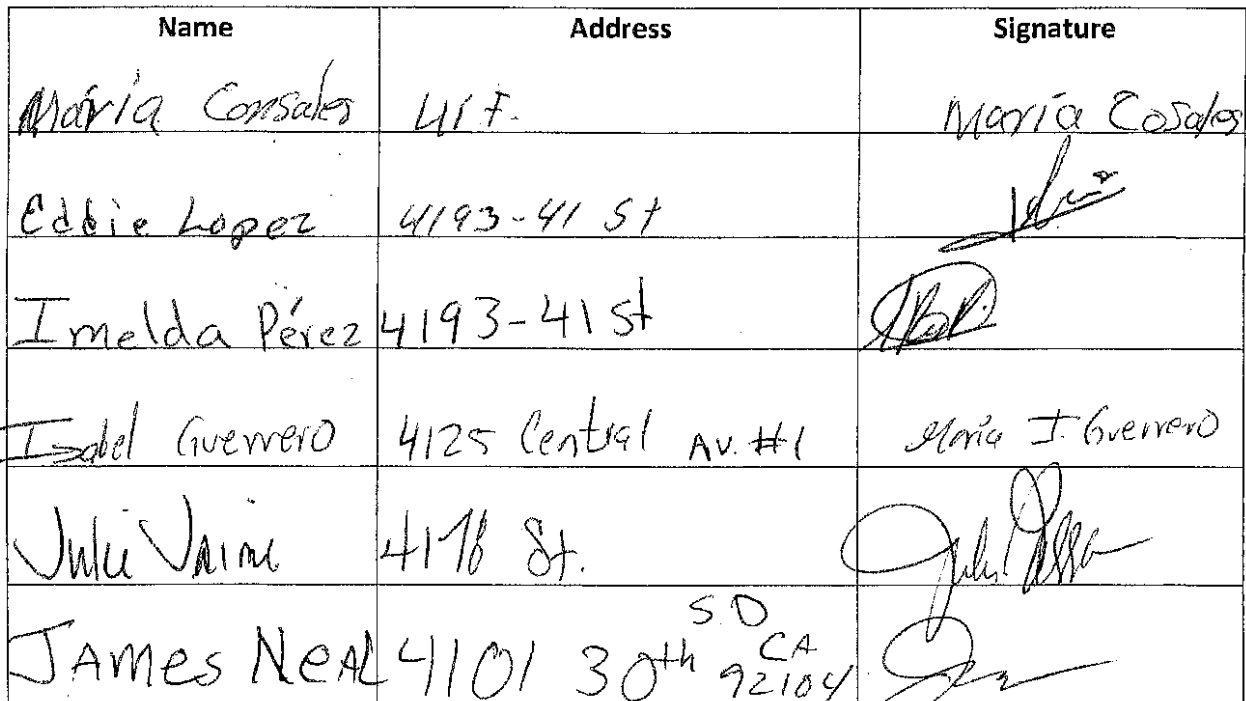 Name Address Signature
María Consales 41 F. María Cosales
Eddie Lopez 4193-41 St
Imelda Pérez 4193-41 st
Isabel Guerrero 4125 Central Av. #1 María I. Guerrero
Julie 4178 St.
James Neal 4101 30th S.D CA 92104